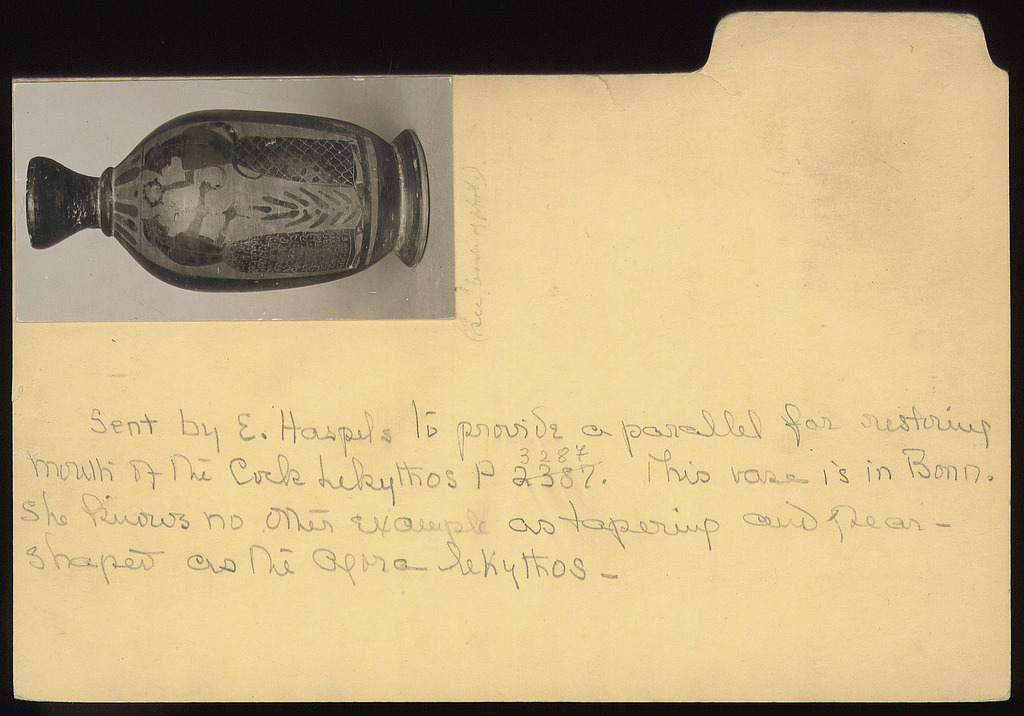 (see back of photo).
Sent by E. Haspels to provide a parallel for restoring
3287
mouth of the Cock Lekythos P 2387. This vase is in Bonn.
She knows no other example as tapering and pear-
shaped as the Agora lekythos -